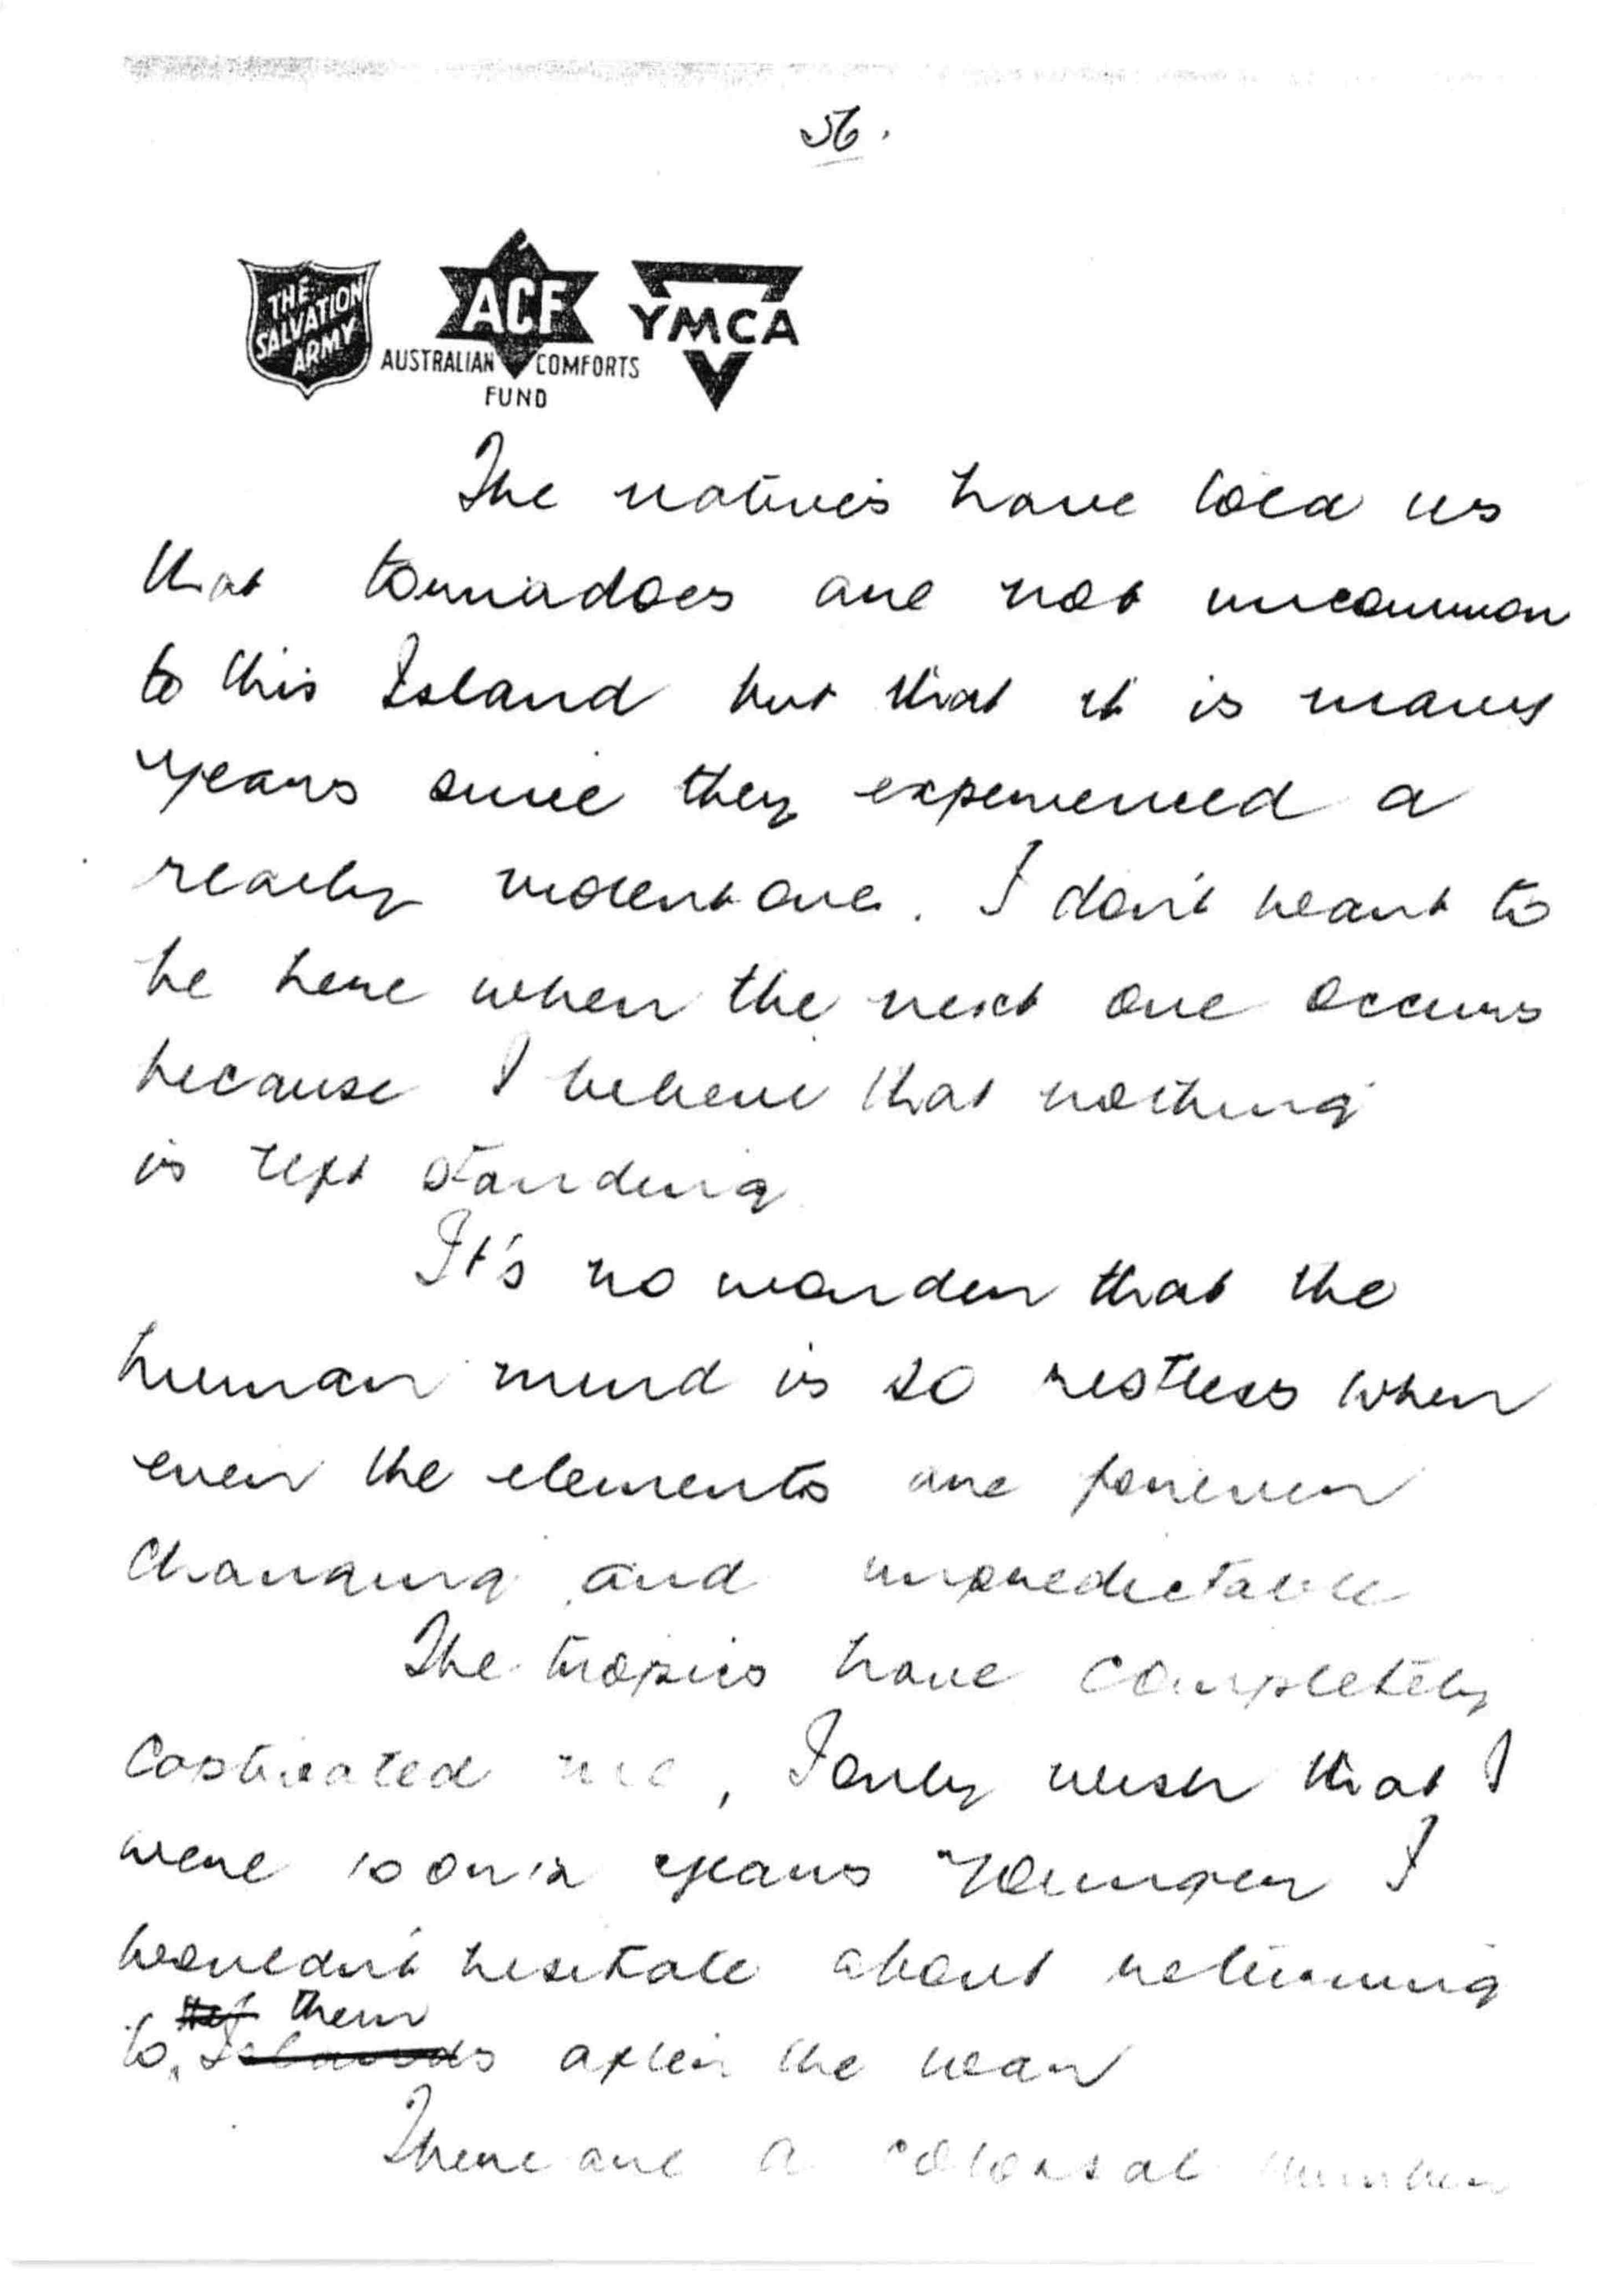 56.
THE SALVATION ARMY
ACF
AUSTRALIAN COMFORTS FUND
YMCA
The natives have told us
that tornadoes are not uncommon
to this Island but that it is many
years since they experienced a
really violent one. I don't want to
be here when the next one occurs
because I believe that nothing
is left standing
It's no wonder that the
human mind is so restless when
even the elements are forever
changing and unpredictable
The tropics have completely
captivated me, I only wish that I
were 10 or 12 years younger I
wouldn't hesitate about returning
to them Islands after the war
There are a colossal number